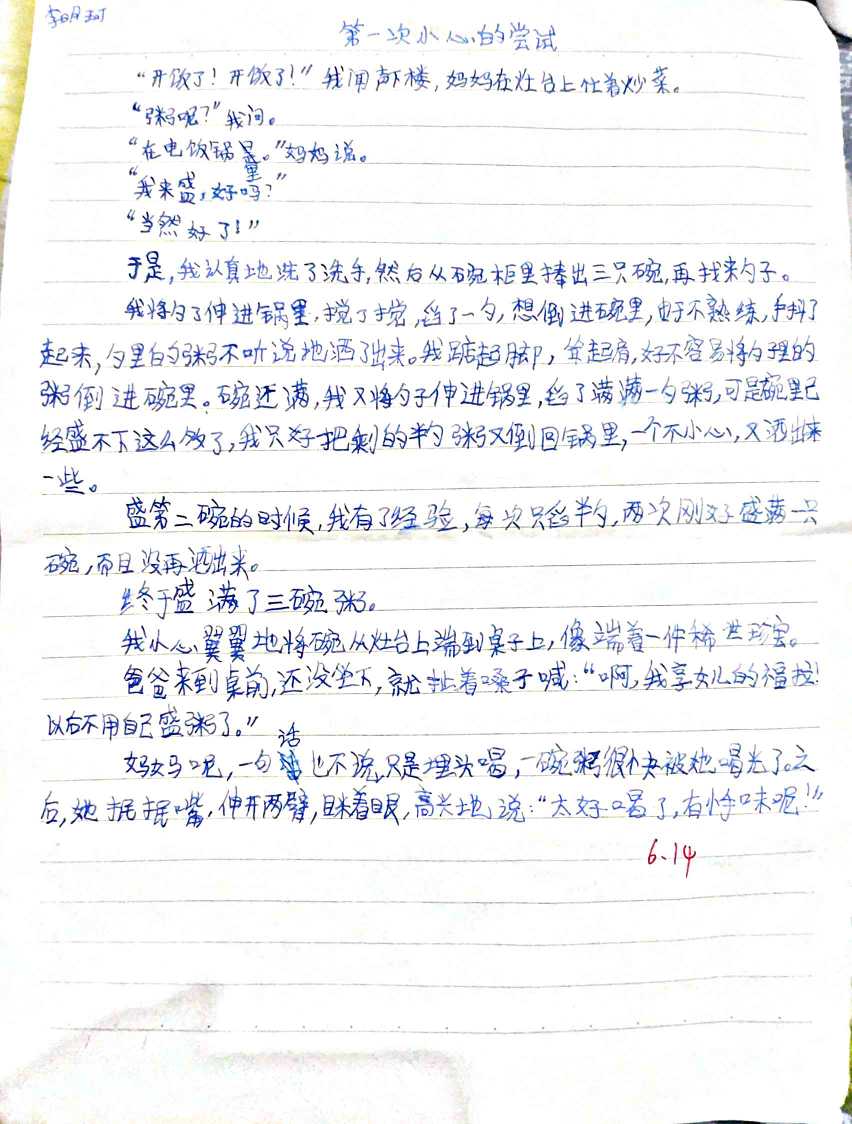 李明珂
第一次小心的尝试
“开饭了!开饭了!”我闻声下楼,妈妈在灶台上忙着炒菜。
“粥呢?”我问。
“在电饭锅里。”妈妈说。
“我来盛,好吗?”
“当然好了!”
于是,我认真地洗了洗手,然后从碗柜里捧出三只碗,再找来勺子。
我将勺了伸进锅里,搅了搅,舀了一勺,想倒进碗里,由于不熟练,手抖了
起来,勺里的粥不听说地洒了出来。我踮起脚,耸起肩,好不容易将勺理的
粥倒进碗里。碗还满,我又将勺子伸进锅里,舀了满满一勺粥,可是碗里已
经盛不下这么多了,我只好把剩的半勺粥又倒回锅里,一个不小心,又洒出来
一些。
盛第二碗的时候,我有了经验,每次只舀半勺,两次刚好盛满一只
碗,而且没再洒出来。
终于盛满了三碗粥。
我小心翼翼地将碗从灶台上端到桌子上,像端着一件稀世珍宝。
爸爸来到桌前,还没坐下,就扯着嗓子喊:“啊,我享女儿的福拉!
以后不用自己盛粥了。”
妈妈呢,一句话也不说,只是埋头喝,一碗粥很快被她喝光了。之
后,她抿抿嘴,伸开两臂,眯着眼,高兴地说:“太好喝了,有味呢!”
6.14